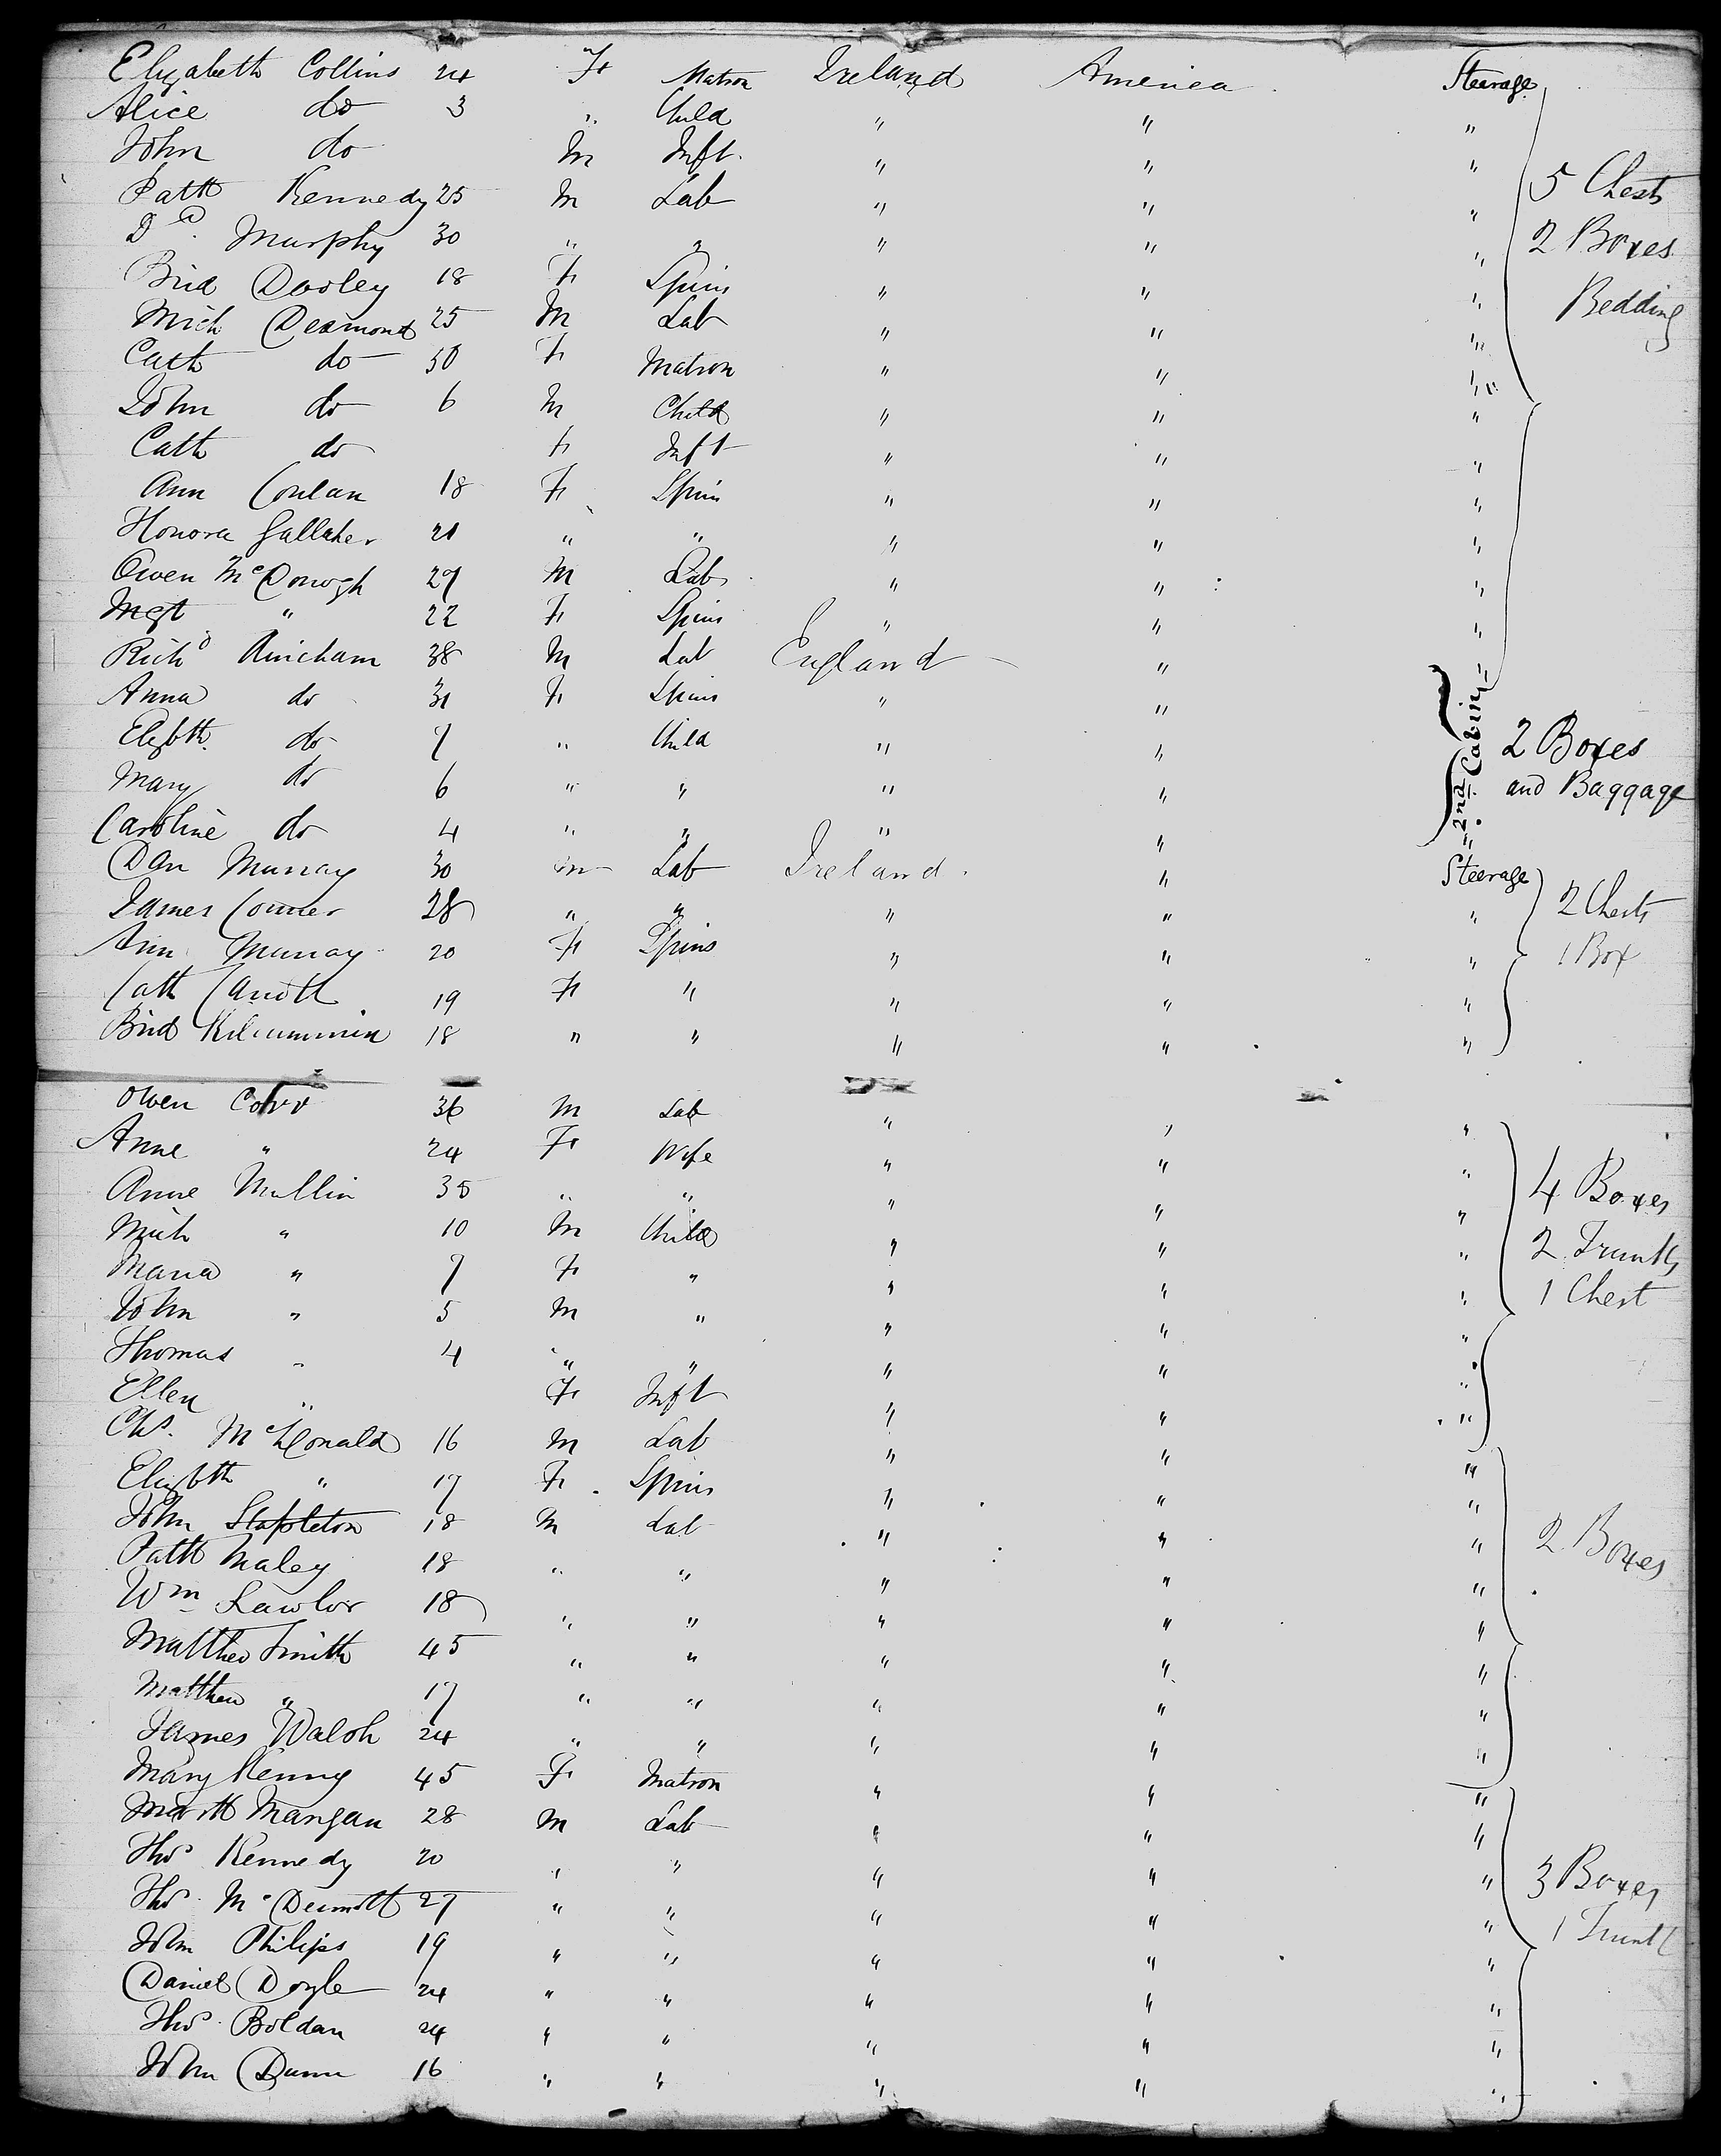 Elizabeth Collins 24 F Matron Ireland America Steerage
Alice do 3 " Child " " "
John do M Inft. " " "
Patk Kennedy 25 M Lab " " " 5 Chests
Dd. Murphy 30 " " " " " 2 Boxes
Brid Dooley 18 F Spins " " " Bedding
Mich Desmond 25 M Lab " " "
Cath do 30 F Matron " " "
John do 6 M Child " " "
Cath do F Inft " " "
Ann Conlan 18 F Spin " " "
Honora Gallaher 21 " " " " "
Owen McDonogh 27 M Lab " " "
Mgt " 22 F Spins " " "
Richd 38 M Lab England " "
Anna do 31 F Spins " " 2nd Cabin
Elizbth. do 7 " Child " " 2 Boxes
Mary do 6 " " " " and Baggage
Caroline do 4 " " " " "
Dan Murray 30 M Lab Ireland " Steerage
James Conner 28 " " " " " 2 Chests
Ann Murray 20 F Spins " " " 1 Box
Cath 19 F " " " "
Brid Kilcummin 18 " " " " "
Owen Corr 36 M Lab " " "
Anne " 24 F Wife " " "
Anne Mullin 35 " " " " " 4 Boxes
Mich " 10 M Child " " " 2 Trunks
Maria " 7 F " " " " 1 Chest
John " 5 M " " " "
Thomas " 4 " " " " "
Ellen " F Inft " " "
Chs. McDonald 16 M Lab " " "
Elizbth " 17 F Spins " " "
John Stapleton 18 M Lab " " " 2 Boxes
Patk Maley 18 " " " " "
Wm Lawlor 18 " " " " "
Matthew Smith 45 " " " " "
Matthew " 17 " " " " "
James Walsh 24 " " " " "
Mary Kenny 45 F Matron " " "
Mangan 28 M Lab " " "
Thos Kennedy 20 " " " " " 3 Boxes
Thos. McDermott 27 " " " " " 1 Trunk
John Philips 19 " " " " "
Daniel Doyle 24 " " " " "
Thos. Boldan 24 " " " " "
John Dunn 16 " " " " "